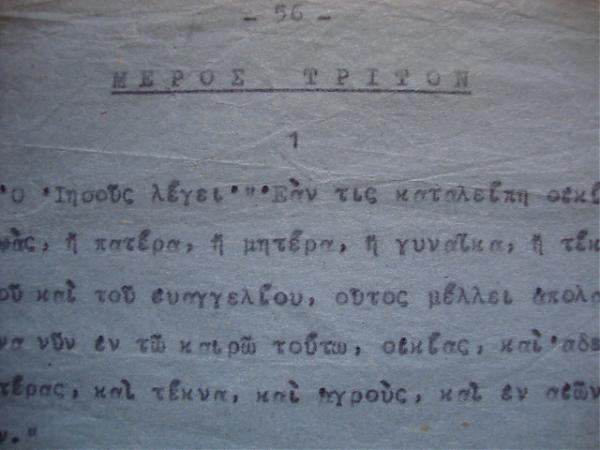 - 56 -
ΜΕΡΟΣ ΤΡΙΤΟΝ
1
Ὁ Ἰησοῦς λέγει·"Ἐὰν τις καταλείπη οικί
φὰς, ἤ πατέρα, ἤ μητέρα, ἤ γυναῖκα, ἤ τέκ
οῦ καὶ τοῦ ευαγγελίου, οὗτος μέλλει ἀπολα
να νῦν ἐν τῶ καιρῶ τούτω, οικίας, καὶ ἀδε
τέρας, καὶ τέκνα, καὶ ἀγροὺς, καὶ εν αιῶν
ν."